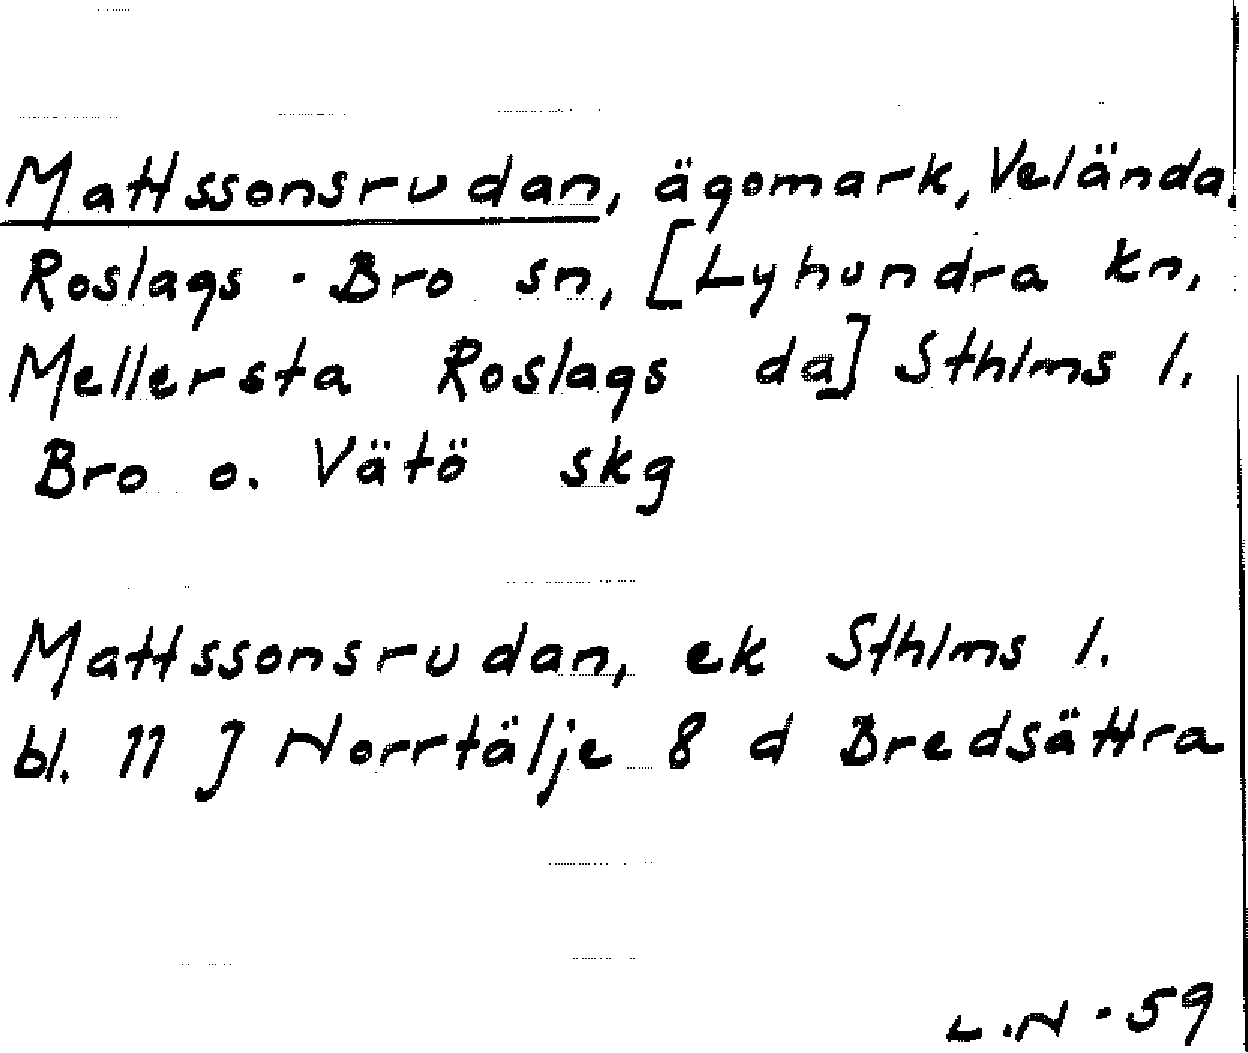 Mattssonsrudan, ägomark, Velända,
Roslags-Bro sn, [Lyhundra kn,
Mellersta Roslags da] Sthlms l.
Bro o. Vätö skg
Mattssonsrudan, ek Sthlms l.
bl. 11 J Norrtälje 8 d Bredsättra
L.N -59